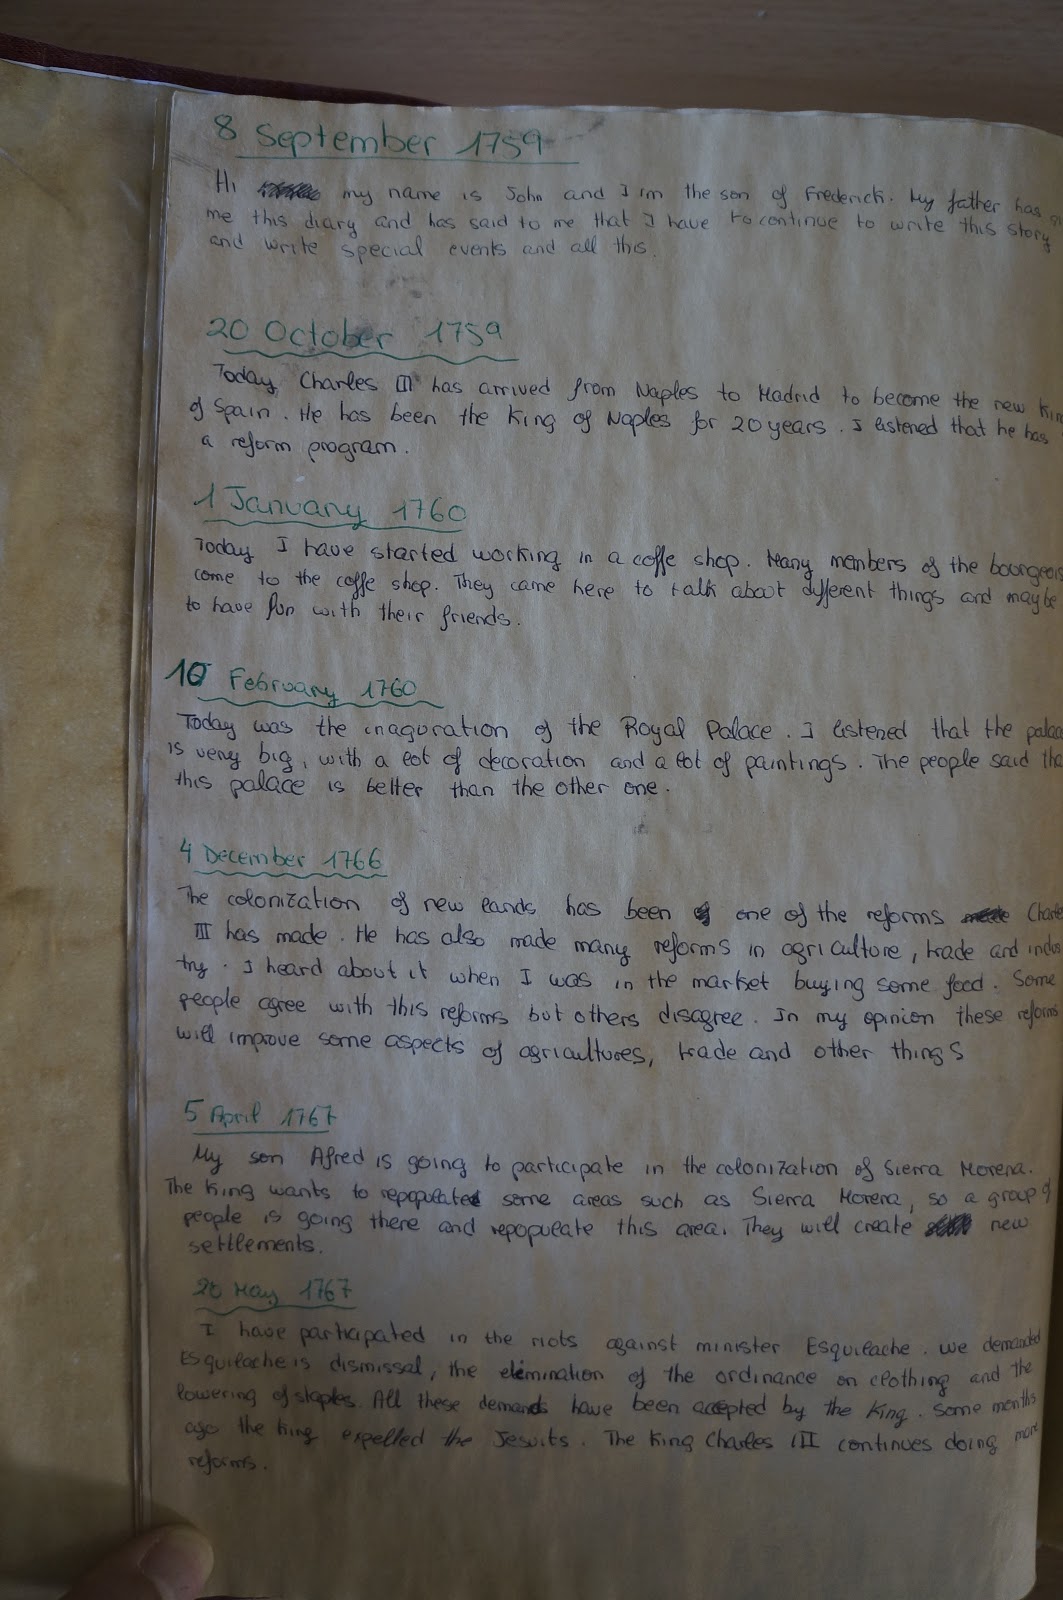 8 September 1759
Hi my name is John and I'm the son of Frederick. My father has
me this diary and has said to me that I have to continue to write this story
and write special events and all this.
20 October 1759
Today Charles III has arrived from Naples to Madrid to become the new kin
of Spain. He has been the King of Naples for 20 years. I listened that he has
a reform program.
1 January 1760
Today I have started working in a coffe shop. Many members of the bourgeois
come to the coffe shop. They came here to talk about different things and maybe
to have fun with their friends.
10 February 1760
Today was the inaguration of the Royal Palace. I listened that the palac
is very big, with a lot of decoration and a lot of paintings. The people said tha
this palace is better than the other one.
4 December 1766
The colonization of new lands has been one of the reforms Charle
III has made. He has also made many reforms in agriculture, trade and indus
try. I heard about it when I was in the market buying some food. Some
people agree with this reforms but others disagree. In my opinion these reforms
will improve some aspects of agricultures, trade and other things
5 April 1767
My son Alfred is going to participate in the colonization of Sierra Morena.
The King wants to repopulated some areas such as Sierra Morena, so a group of
people is going there and repopulate this area. They will create new
settlements.
20 May 1767
I have participated in the riots against minister Esquilache. we demanded
Esquilache is dismissal, the elimination of the ordinance on clothing and the
lowering of staples. All these demands have been accepted by the King. Some months
ago the King expelled the Jesuits. The King Charles III continues doing more
reforms.